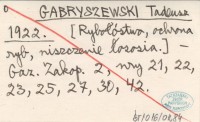 GABRYSZEWSKI Tadeusz
1922. [Rybołóstwo, ochrona
ryb, niszczenie łososia.] –
Gaz. Zakop. 2, nry 21, 22,
23, 25, 27, 30, 42.